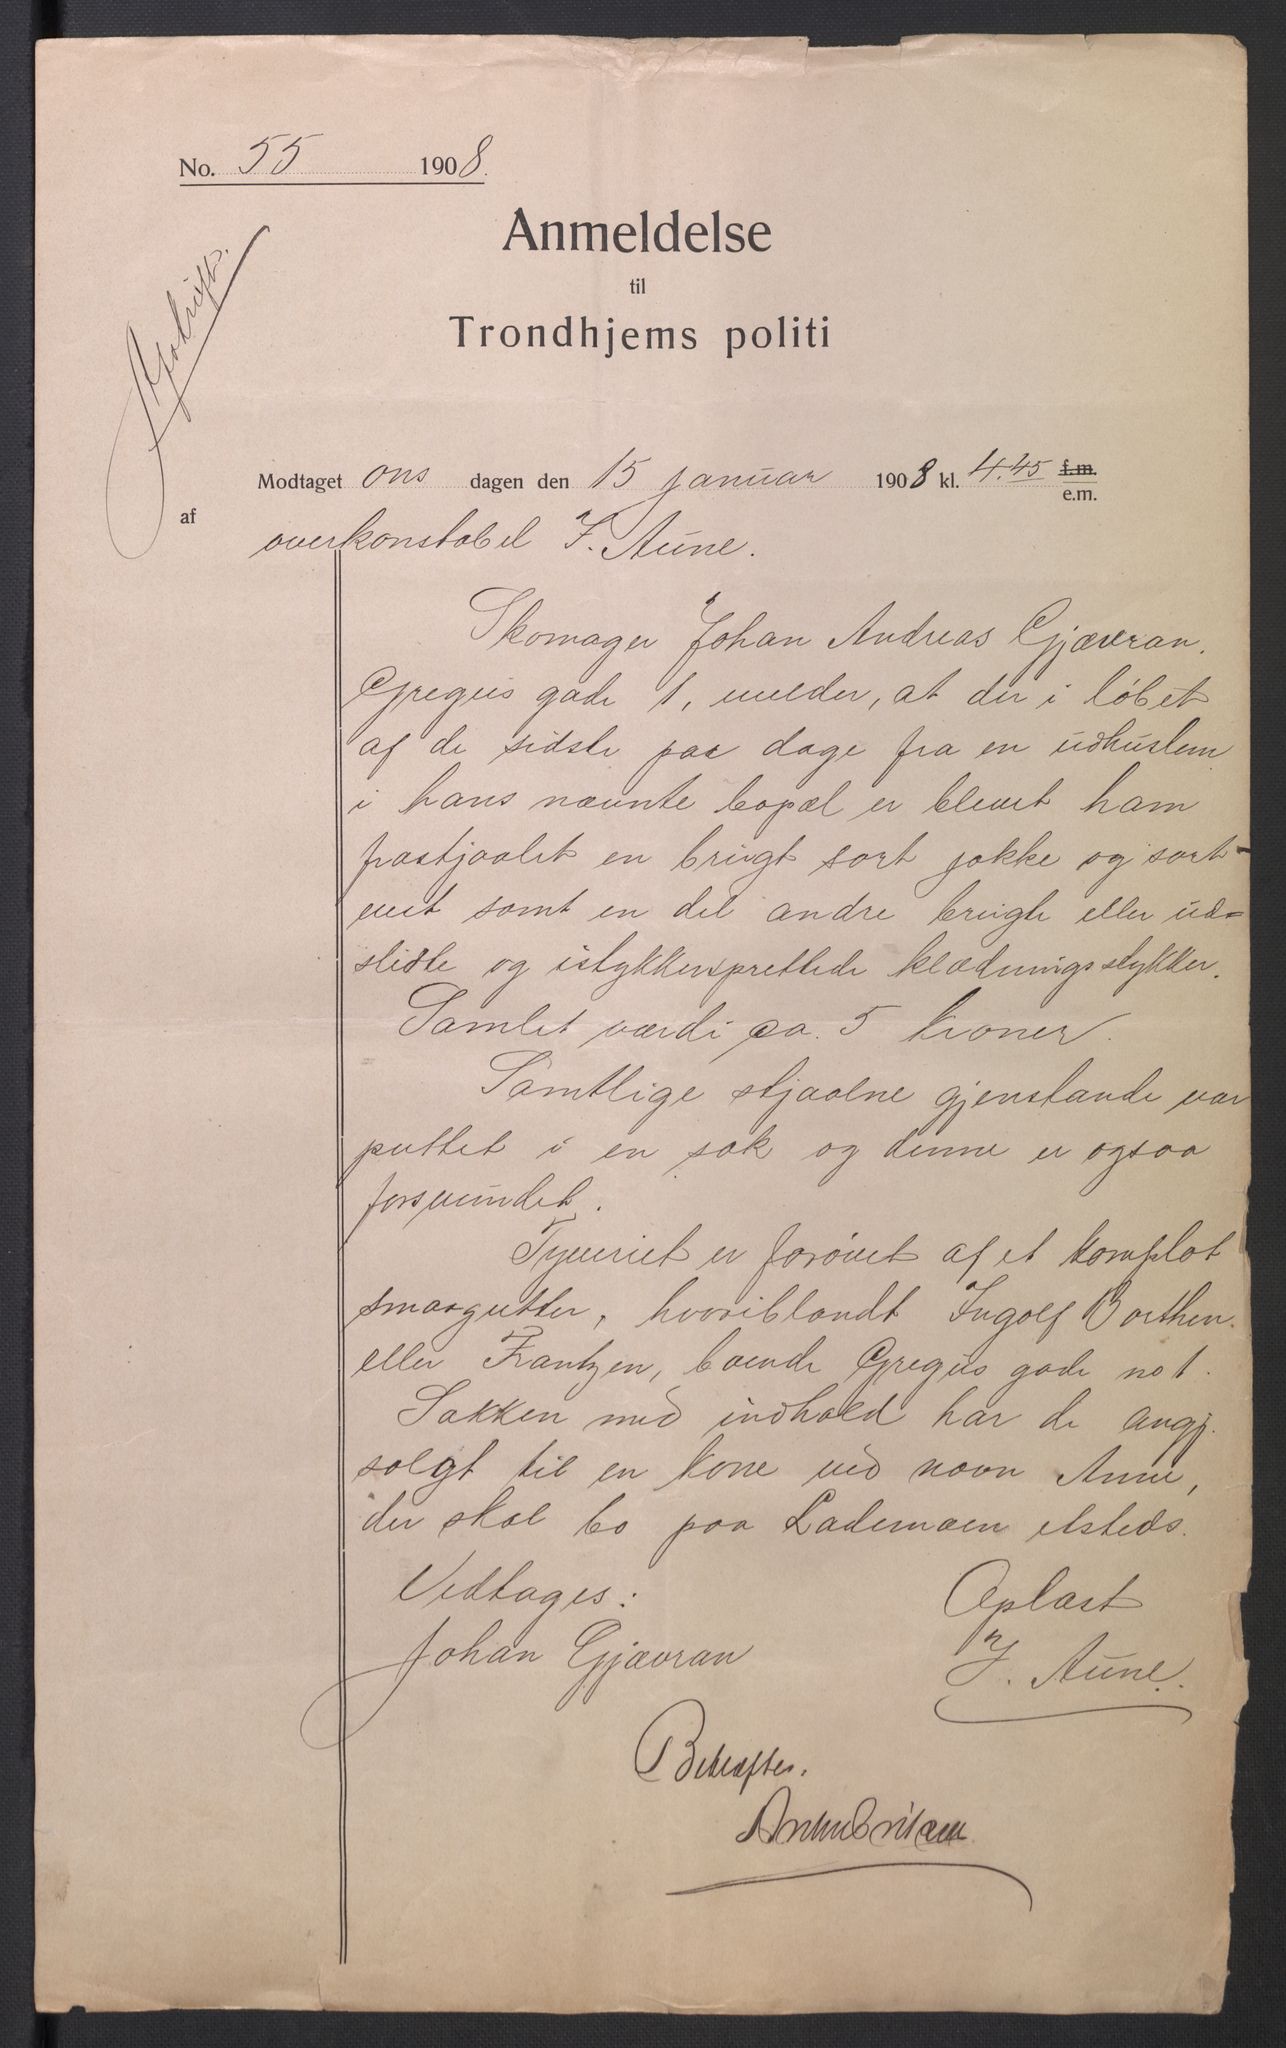 No. 55 1908.
Anmeldelse
til
Trondhjems politi
Afskrift.
Modtaget ons dagen den 15 januar 1908 kl. 4.45 f.m.
e.m.
af overkonstabel I. Aune.
Skomager Johan Andreas Gjævran,
Gregus gade 1, melder, at der i løbet
af de sidste par dage fra en udhuslem
i hans nævnte bopæl er blevet ham
frastjaalet en brugt sort jakke og sort
vest samt en del andre brugte eller ud-
slidte og istykkersprettede klædningsstykker.
Samlet værdi ca. 5 kroner.
Samtlige stjaalne gjenstande var
puttet i en sæk og denne er ogsaa
forsvundet.
Tyveriet er forøvet af et komplot
smaagutter, hvoriblandt Ingolf Borthen
eller Frantzen, boende Gregus gade no 1.
Sækken med indhold har de angj.
solgt til en kone ved navn Anne,
der skal bo paa Lademoen etsteds.
Vedtages: Oplæst
Johan Gjævran I. Aune.
Bekræftes.